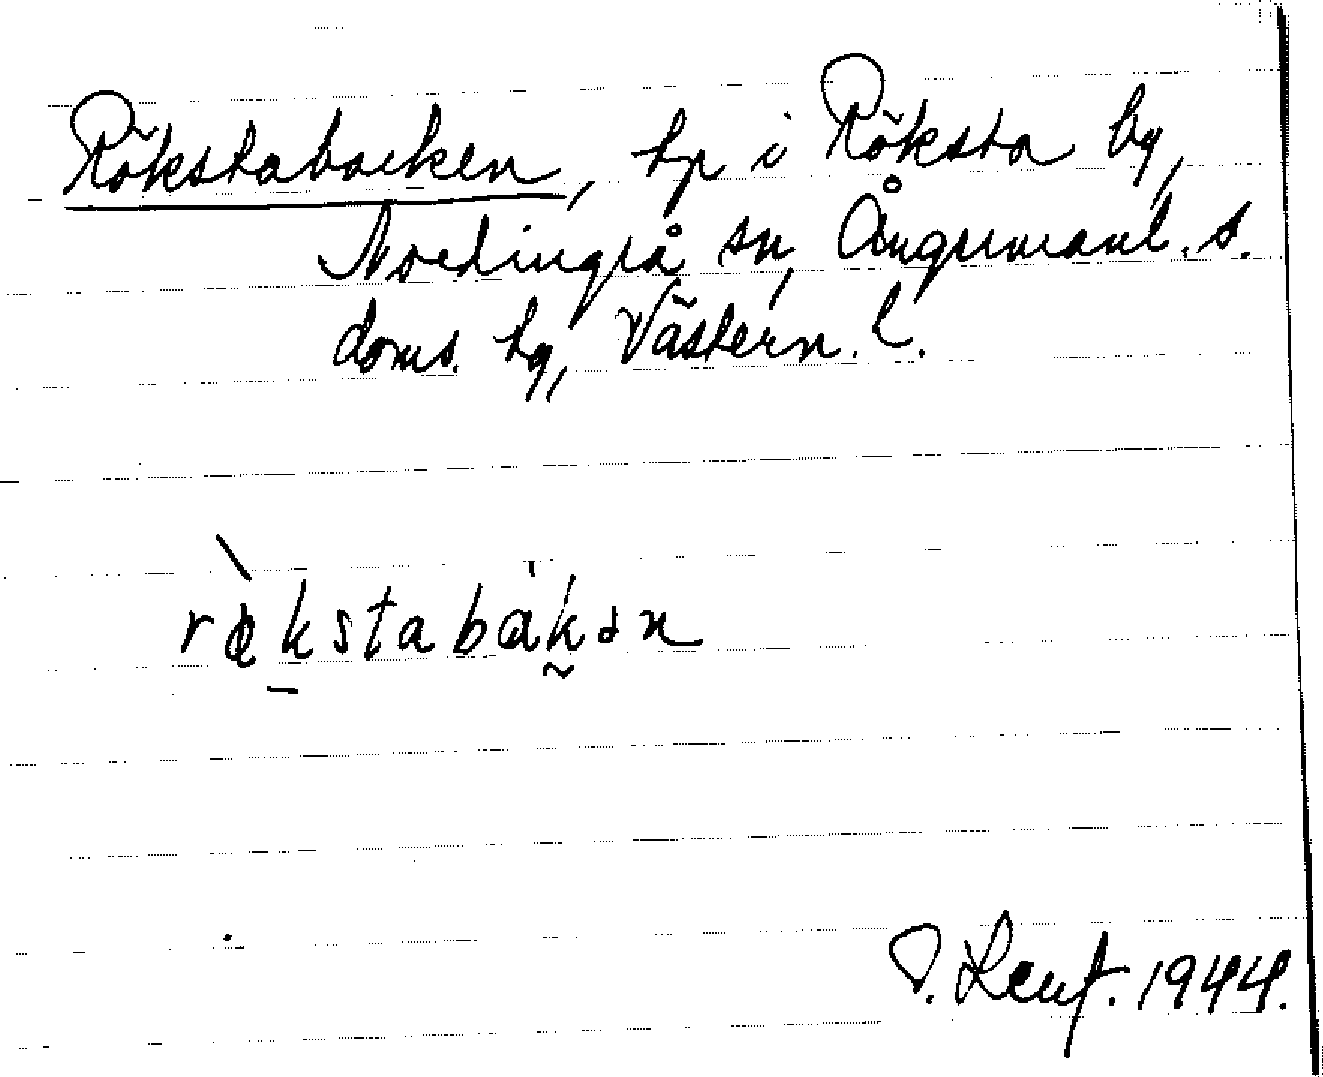 Rökstabacken, tp i Röksta by,
Nordingrå sn, Ångermanl. s.
doms. tg, Västern. l.
rø̀kstabak̰ən
1944.